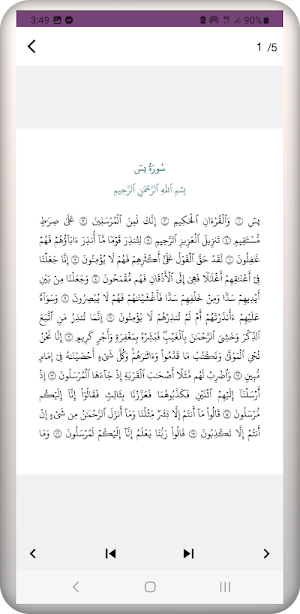 3:49 90%
1 /5
سُورَةُ يسٓ
بِسْمِ ٱللَّهِ ٱلرَّحْمَٰنِ ٱلرَّحِيمِ
يسٓ ۝١ وَٱلْقُرْءَانِ ٱلْحَكِيمِ ۝٢ إِنَّكَ لَمِنَ ٱلْمُرْسَلِينَ ۝٣ عَلَىٰ صِرَٰطٍ
مُّسْتَقِيمٍ ۝٤ تَنزِيلَ ٱلْعَزِيزِ ٱلرَّحِيمِ ۝٥ لِتُنذِرَ قَوْمًا مَّآ أُنذِرَ ءَابَآؤُهُمْ فَهُمْ
غَٰفِلُونَ ۝٦ لَقَدْ حَقَّ ٱلْقَوْلُ عَلَىٰٓ أَكْثَرِهِمْ فَهُمْ لَا يُؤْمِنُونَ ۝٧ إِنَّا جَعَلْنَا
فِىٓ أَعْنَٰقِهِمْ أَغْلَٰلًا فَهِىَ إِلَى ٱلْأَذْقَانِ فَهُم مُّقْمَحُونَ ۝٨ وَجَعَلْنَا مِنۢ بَيْنِ
أَيْدِيهِمْ سَدًّا وَمِنْ خَلْفِهِمْ سَدًّا فَأَغْشَيْنَٰهُمْ فَهُمْ لَا يُبْصِرُونَ ۝٩ وَسَوَآءٌ
عَلَيْهِمْ ءَأَنذَرْتَهُمْ أَمْ لَمْ تُنذِرْهُمْ لَا يُؤْمِنُونَ ۝١٠ إِنَّمَا تُنذِرُ مَنِ ٱتَّبَعَ
ٱلذِّكْرَ وَخَشِىَ ٱلرَّحْمَٰنَ بِٱلْغَيْبِ ۖ فَبَشِّرْهُ بِمَغْفِرَةٍ وَأَجْرٍ كَرِيمٍ ۝١١ إِنَّا نَحْنُ
نُحْىِ ٱلْمَوْتَىٰ وَنَكْتُبُ مَا قَدَّمُوا۟ وَءَاثَٰرَهُمْ ۚ وَكُلَّ شَىْءٍ أَحْصَيْنَٰهُ فِىٓ إِمَامٍ
مُّبِينٍ ۝١٢ وَٱضْرِبْ لَهُم مَّثَلًا أَصْحَٰبَ ٱلْقَرْيَةِ إِذْ جَآءَهَا ٱلْمُرْسَلُونَ ۝١٣ إِذْ
أَرْسَلْنَآ إِلَيْهِمُ ٱثْنَيْنِ فَكَذَّبُوهُمَا فَعَزَّزْنَا بِثَالِثٍ فَقَالُوٓا۟ إِنَّآ إِلَيْكُم
مُّرْسَلُونَ ۝١٤ قَالُوا۟ مَآ أَنتُمْ إِلَّا بَشَرٌ مِّثْلُنَا وَمَآ أَنزَلَ ٱلرَّحْمَٰنُ مِن شَىْءٍ إِنْ
أَنتُمْ إِلَّا تَكْذِبُونَ ۝١٥ قَالُوا۟ رَبُّنَا يَعْلَمُ إِنَّآ إِلَيْكُمْ لَمُرْسَلُونَ ۝١٦ وَمَا